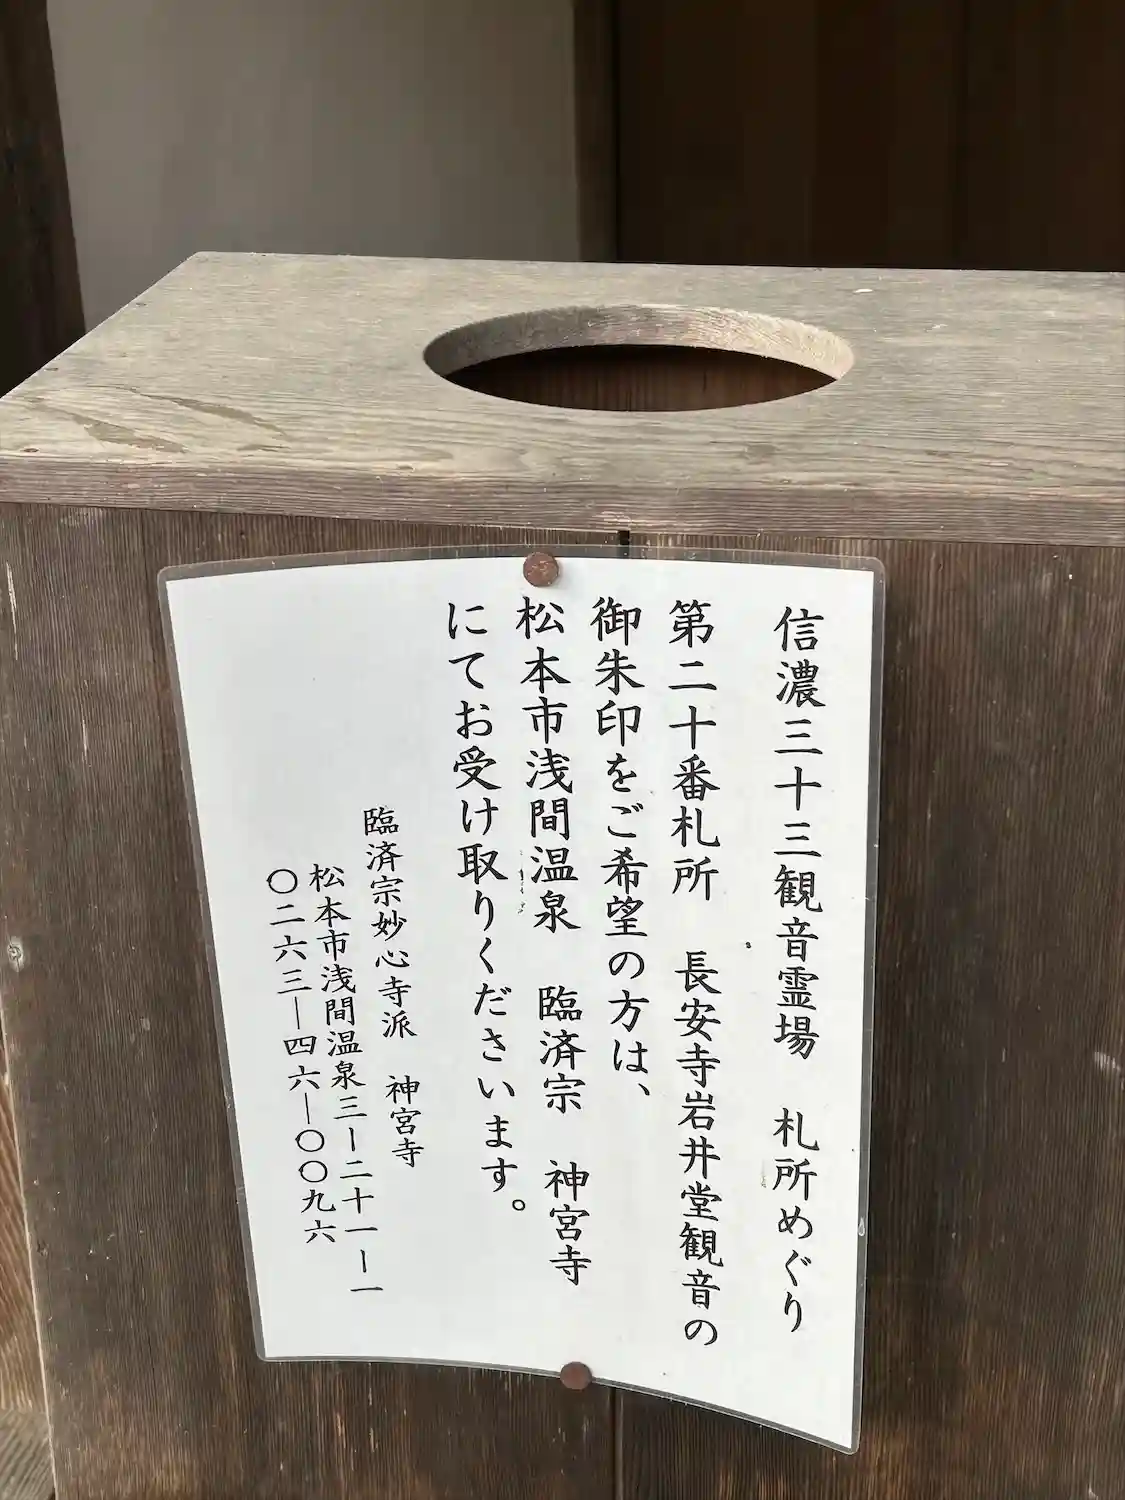 信濃三十三観音霊場　札所めぐり
第二十番札所　長安寺岩井堂観音の
御朱印をご希望の方は、
松本市浅間温泉　臨済宗　神宮寺
にてお受け取りくださいます。
臨済宗妙心寺派　神宮寺
松本市浅間温泉三ー二十一ー一
〇二六三ー四六ー〇〇九六